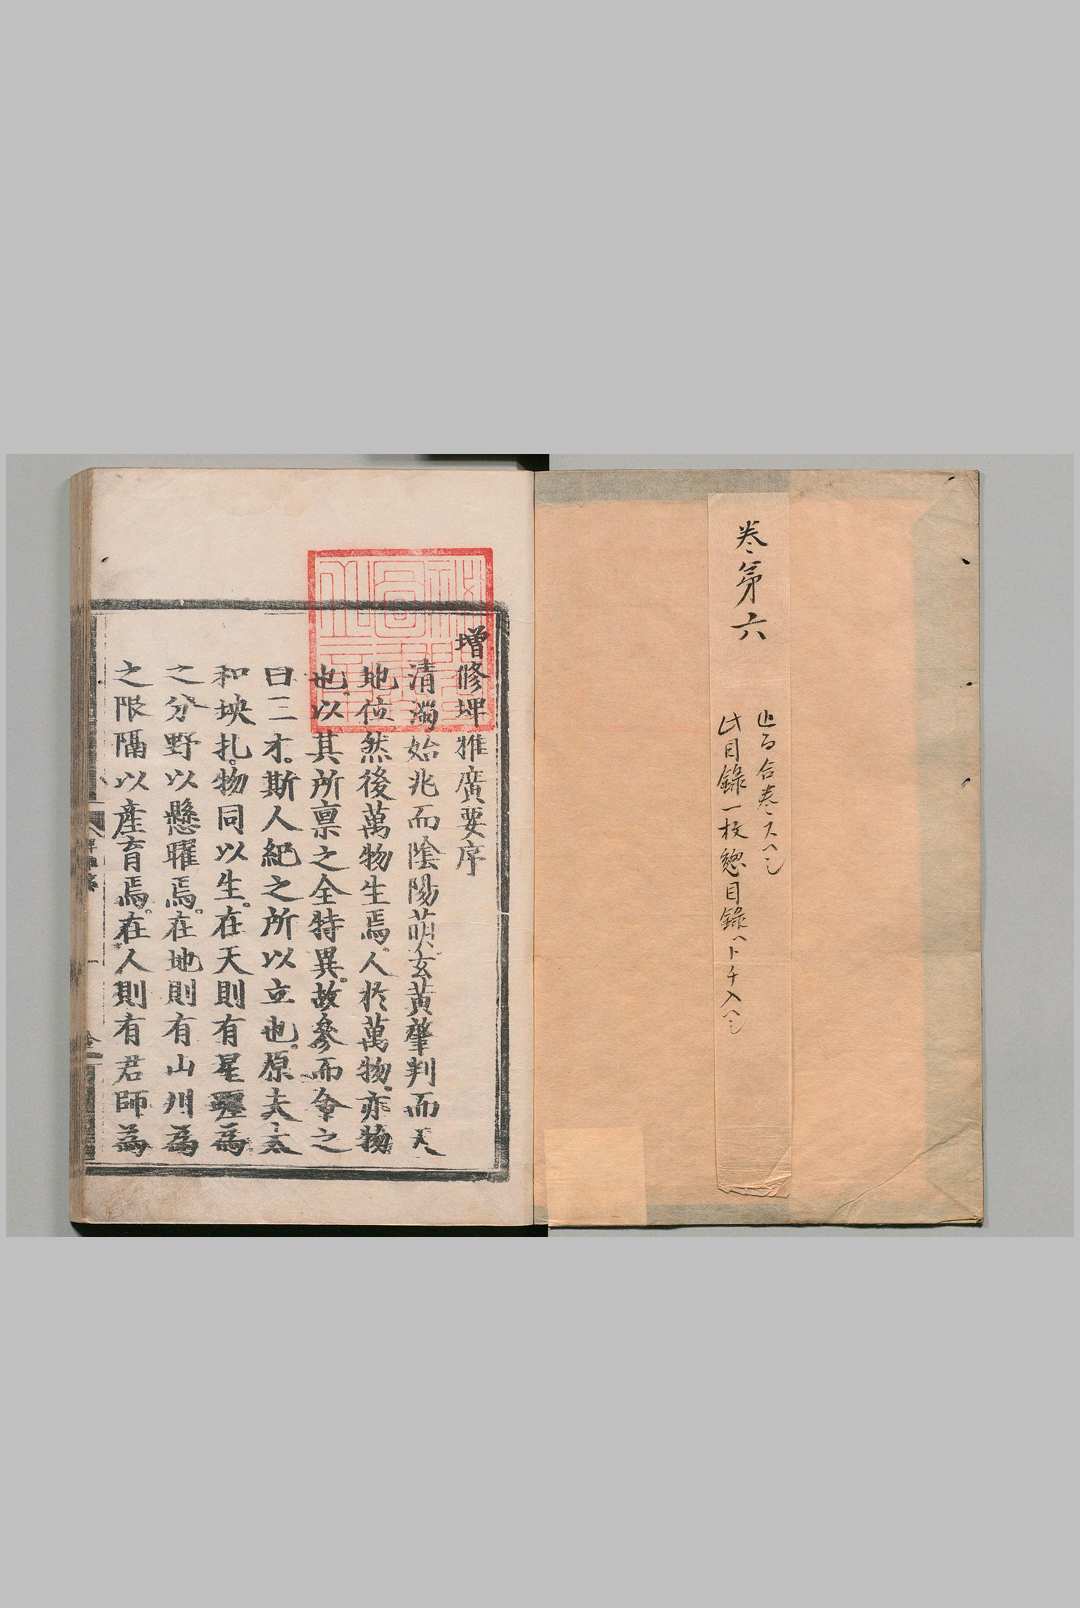 卷第六
此目錄一枚惣目錄ハトチ入ヘシ
增修埤雅廣要序
清濁始兆而陰陽萌玄黃肇判而天
地位然後萬物生焉人於萬物亦物
也以其所稟之全特異故參而命之
曰三才斯人紀之所以立也原夫太
和坱扎物同以生在天則有星躔爲
之分野以懸曜焉在地則有山川爲
之限隔以產育焉在人則有君師爲